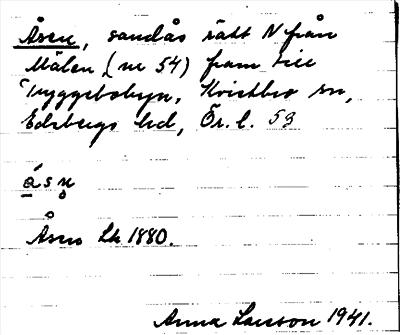 Åsen, sandås rätt N från
Målen, (nr 54) fram till
Tryggebobyn, Kvistbro sn,
Edsbergs hd, Ör. l. 53
åsn̥
Åsen Lk 1880.
Anna Larsson 1941.